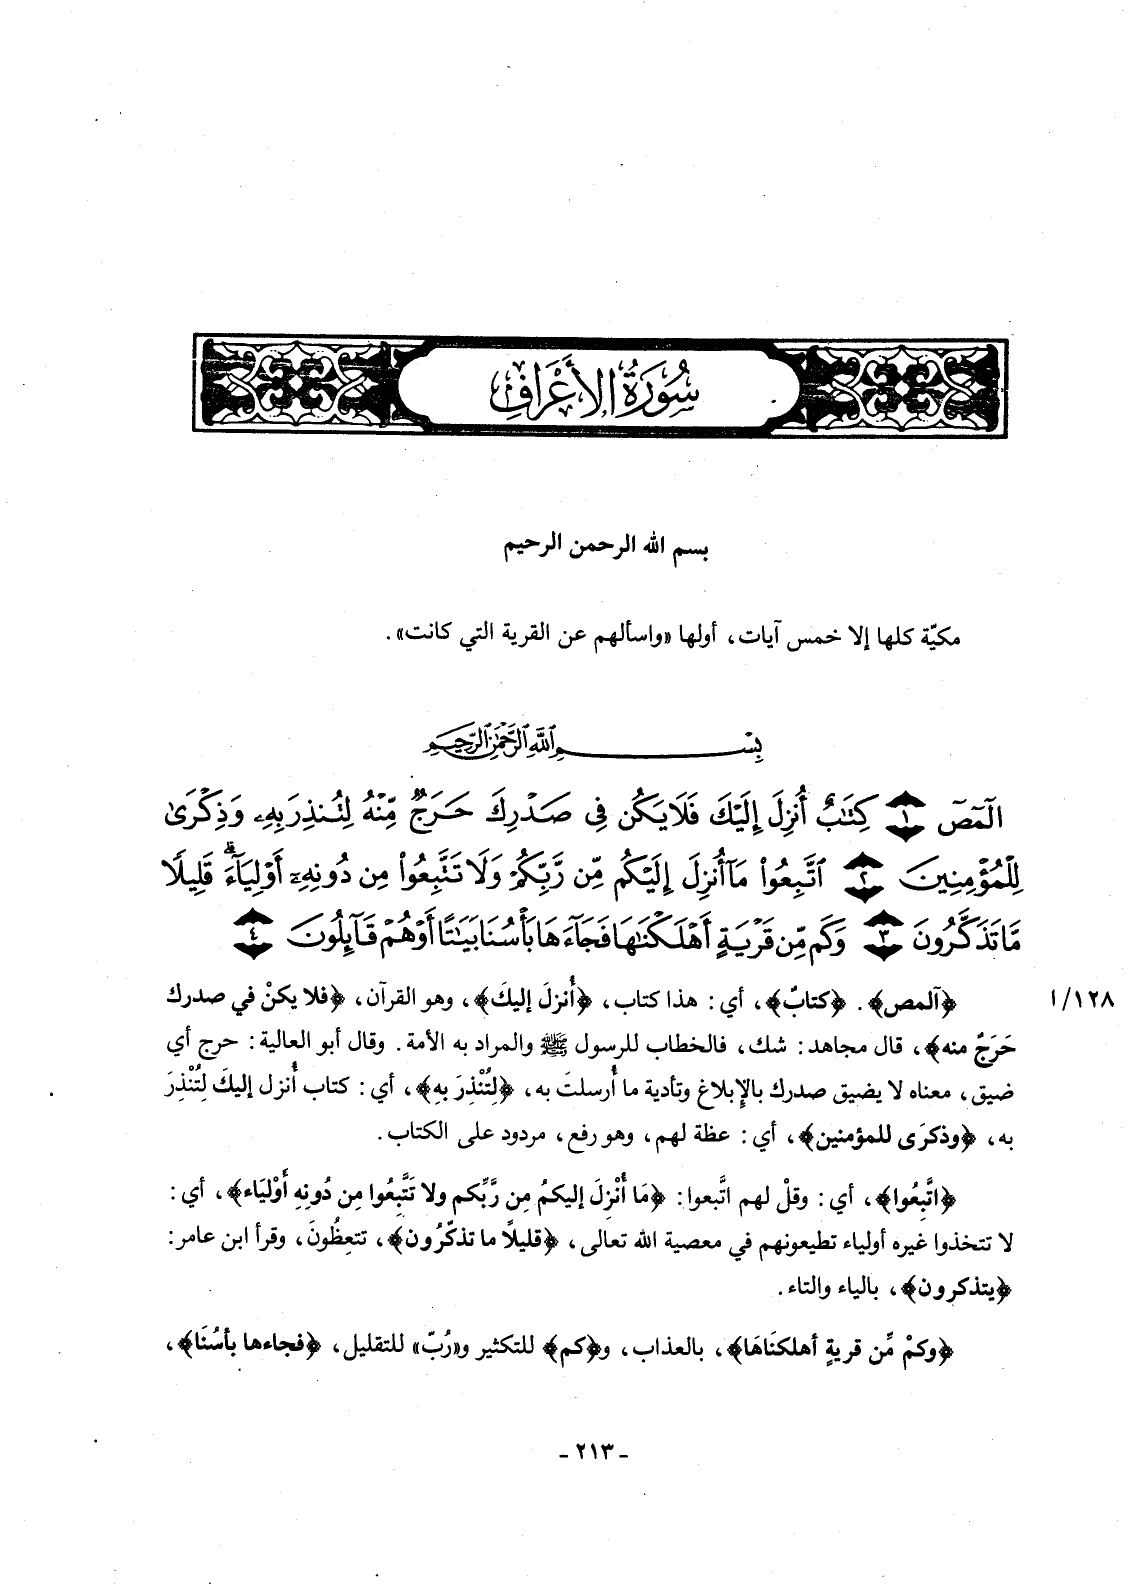 سُورَةُ الأَعْرَافِ
بسم الله الرحمن الرحيم
مكيّة كلها إلا خمس آيات، أولها «واسألهم عن القرية التي كانت».
بِسْمِ اللَّهِ الرَّحْمَٰنِ الرَّحِيمِ
الٓمٓصٓ ١ كِتَٰبٌ أُنزِلَ إِلَيْكَ فَلَا يَكُن فِى صَدْرِكَ حَرَجٌ مِّنْهُ لِتُنذِرَ بِهِۦ وَذِكْرَىٰ
لِلْمُؤْمِنِينَ ٢ ٱتَّبِعُوا۟ مَآ أُنزِلَ إِلَيْكُم مِّن رَّبِّكُمْ وَلَا تَتَّبِعُوا۟ مِن دُونِهِۦٓ أَوْلِيَآءَ ۗ قَلِيلًا
مَّا تَذَكَّرُونَ ٣ وَكَم مِّن قَرْيَةٍ أَهْلَكْنَٰهَا فَجَآءَهَا بَأْسُنَا بَيَٰتًا أَوْ هُمْ قَآئِلُونَ ٤
﴿آلمص﴾. ﴿كتابٌ﴾، أي: هذا كتاب، ﴿أُنزلَ إليكَ﴾، وهو القرآن، ﴿فلا يكنْ في صدرك ١٢٨/ا
حَرَجٌ منه﴾، قال مجاهد: شك، فالخطاب للرسول ﷺ والمراد به الأمة. وقال أبو العالية: حرج أي
ضيق، معناه لا يضيق صدرك بالإبلاغ وتأدية ما أُرسلتَ به، ﴿لِتُنْذِرَ بِهِ﴾، أي: كتاب أُنزل إليكَ لِتُنْذِرَ
به، ﴿وذكرَى للمؤمنين﴾، أي: عظة لهم، وهو رفع، مردود على الكتاب.
﴿اتَّبِعُوا﴾، أي: وقلْ لهم اتَّبعوا: ﴿مَا أُنْزِلَ إليكمُ مِن رَّبِّكم ولا تَتَّبِعُوا مِن دُونِهِ أَوْلِيَاء﴾، أي:
لا تتخذوا غيره أولياء تطيعونهم في معصية الله تعالى، ﴿قليلًا ما تذكّرُون﴾، تتعِظُونَ، وقرأ ابن عامر:
﴿يتذكرون﴾، بالياء والتاء.
﴿وكمْ مِّن قريةٍ أهلكنَاهَا﴾، بالعذاب، و﴿كم﴾ للتكثير و«رُبّ» للتقليل، ﴿فجاءها بأسُنَا﴾،
- ٢١٣ -